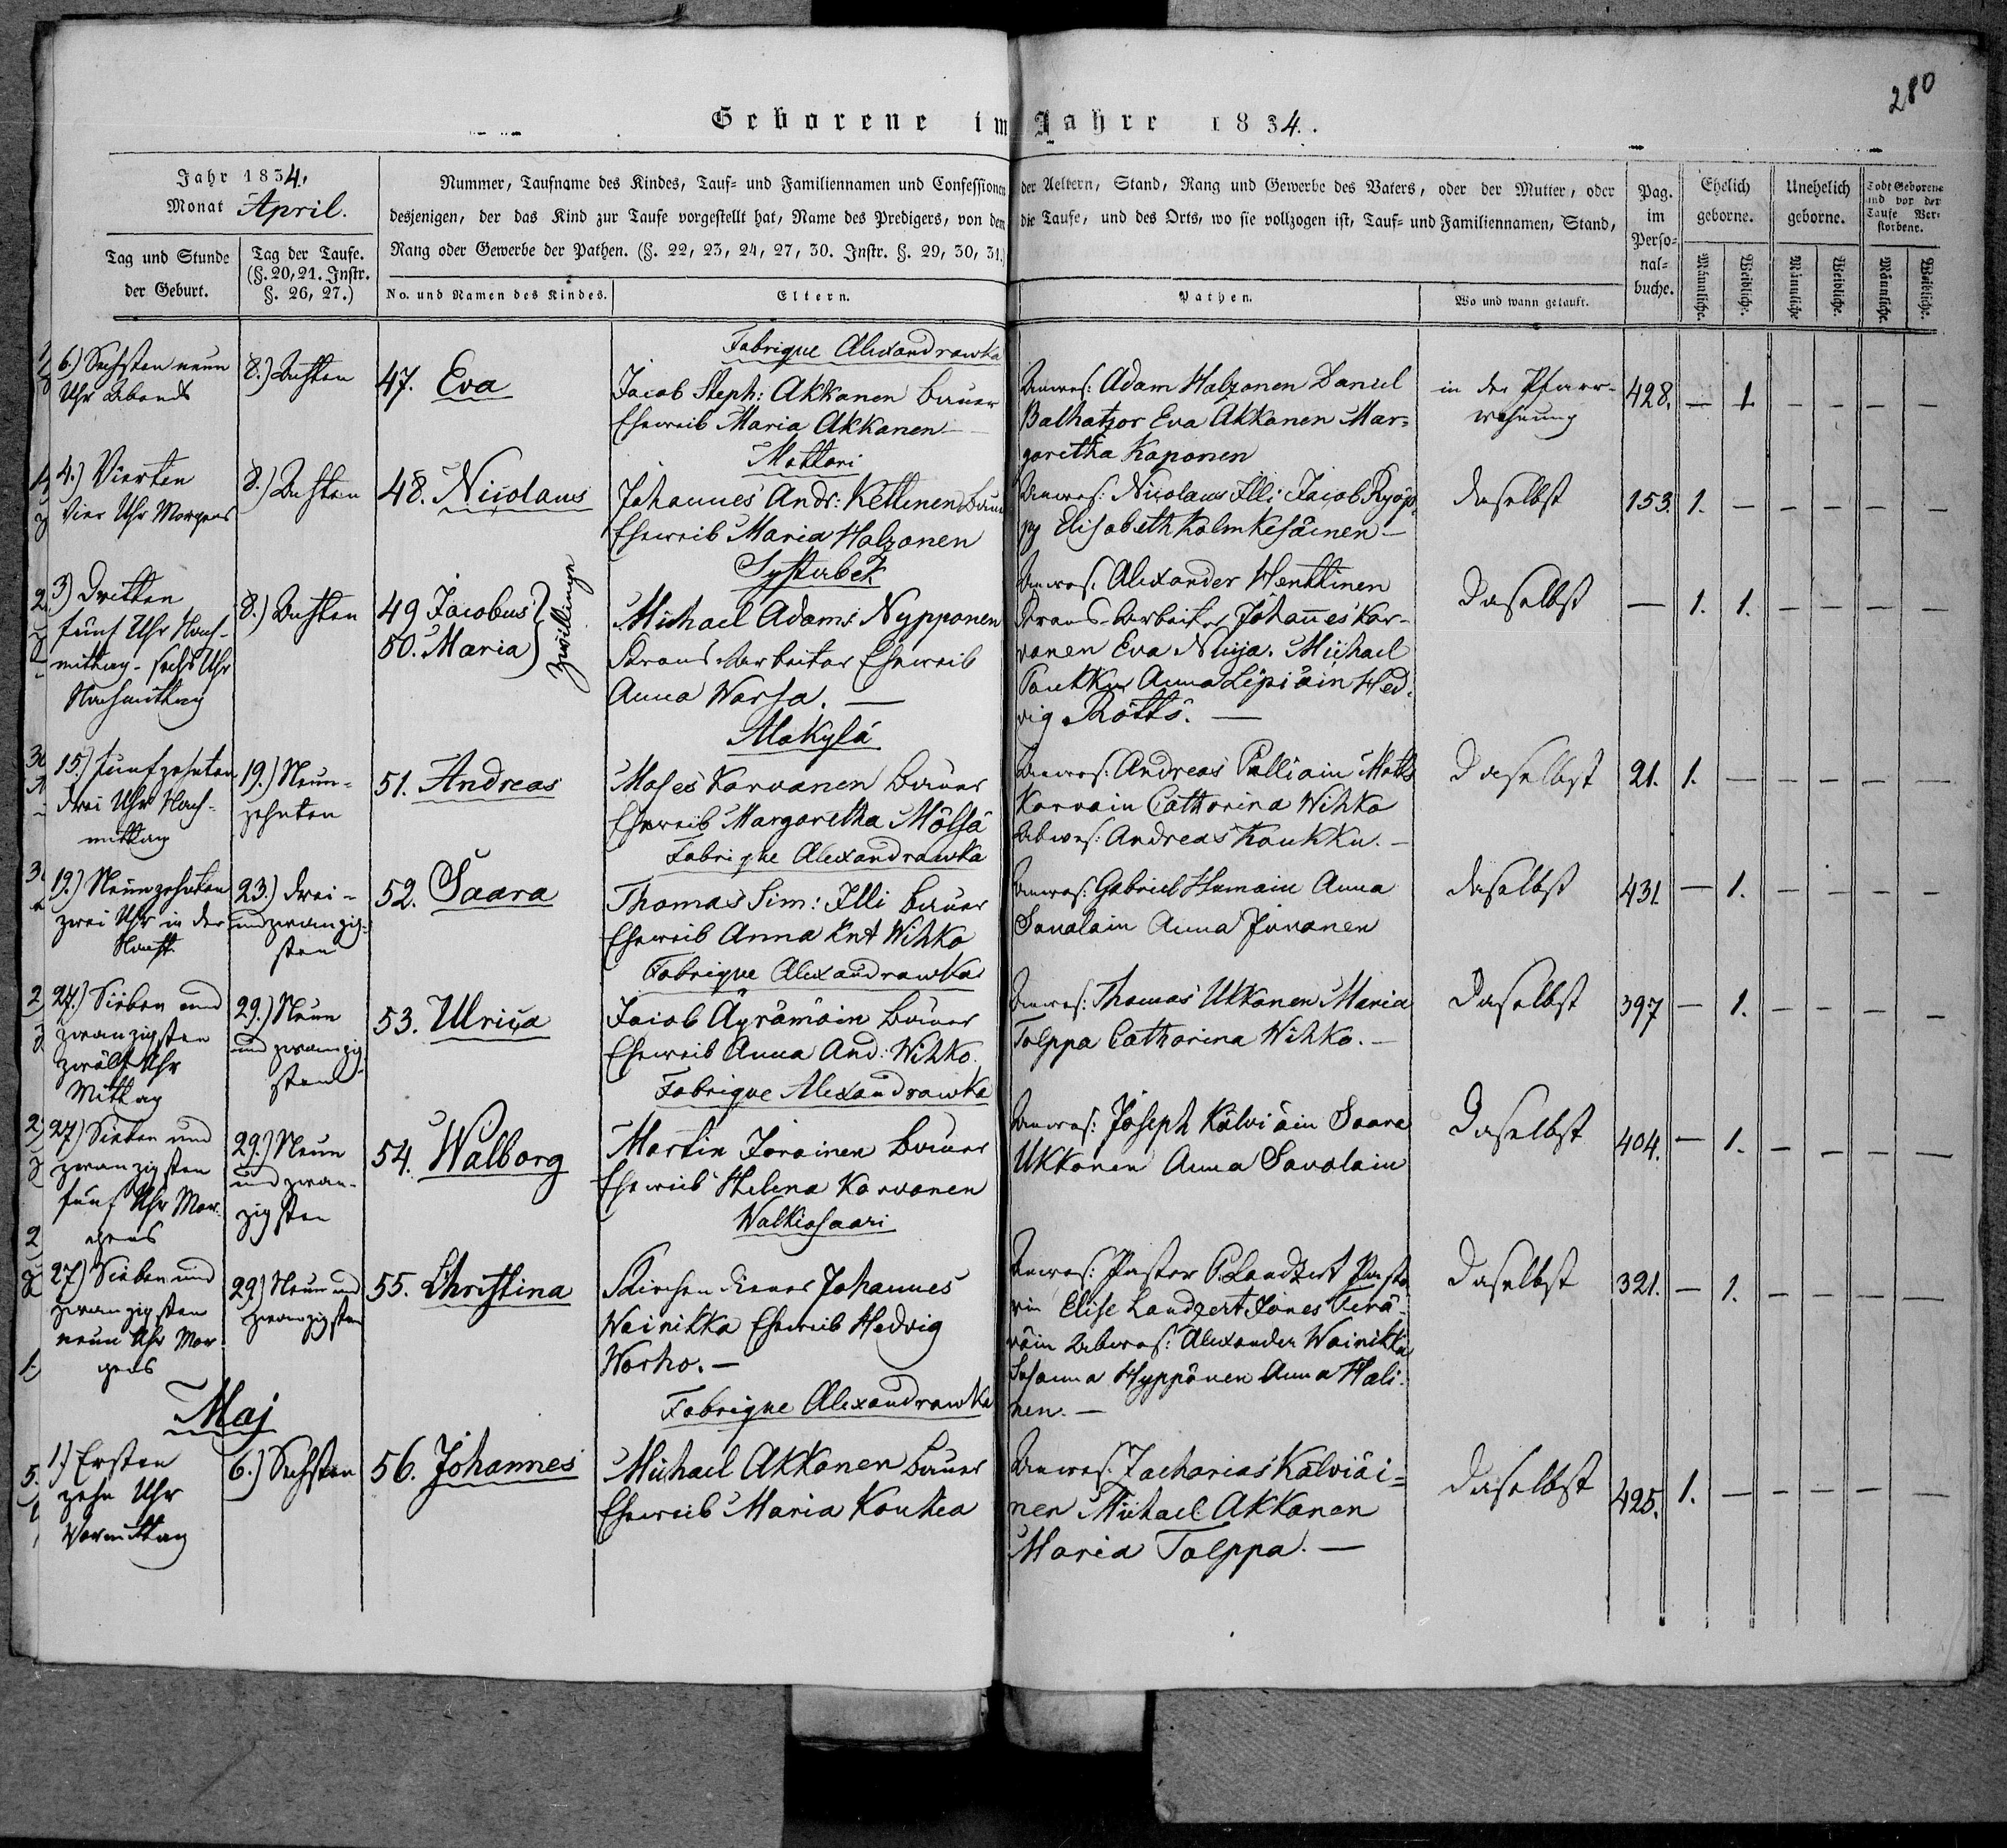 280
Geborene im Jahre 1834.
Jahr 1834.
Monat April.
Tag und Stunde
der Geburt.
Tag der Taufe.
(§. 20, 21. Instr.
§. 26, 27.)
Nummer, Taufname des Kindes, Tauf- und Familiennamen und Confessionen der Aeltern, Stand, Rang und Gewerbe des Vaters, oder der Mutter, oder
desjenigen, der das Kind zur Taufe vorgestellt hat, Name des Predigers, von dem die Taufe, und des Orts, wo sie vollzogen ist, Tauf- und Familiennamen, Stand,
Rang oder Gewerbe der Pathen. (§. 22, 23, 24, 27, 30. Instr. §. 29, 30, 31.)
No. und Namen des Kindes.
Eltern.
Pathen.
Wo und wann getauft.
Pag.
im
Perso-
nal-
buche.
Ehelich
geborne.
Unehelich
geborne.
Todt Geborene
und vor der
Taufe Ver-
storbene.
Männliche.
Weibliche.
Männliche
Weibliche.
Männliche.
Weibliche.
6.) Sechsten neun
Uhr Abends
8.) Achten
47. Eva
Fabrique Alexandrawka
Jacob Steph: Akkanen Bauer
Eheweib Maria Akkanen —
Anwes: Adam Halzonen Daniel
Balhatzor Eva Akkanen Mar-
garetha Kaponen
in der Pfarr-
wohnung
428. — 1. — — — —
4.) Vierten
Vier Uhr Morgens
8.) Achten
48. Nicolaus
Mottori
Johannes Andr: Kettinen Bauer
Eheweib Maria Halzonen
Anwes: Nicolaus Illi Jacob Ryöp-
py Elisabeth Kolmkesäinen —
daselbst
153. 1. — — — — —
3) Dritten
fünf Uhr Nach-
mittag - sechs Uhr
Nachmittag
8.) Achten
49 Jacobus
50. Maria
Zwillinge
Systerbek
Michael Adams Nypponen
Krons-Arbeiter Eheweib
Anna Warsa. —
Anwes. Alexander Henttinen
Krons-Arbeiter Johannes Kar-
vanen Eva Nuija. Michael
Poutku Anna Lipiäin Hed-
vig Röttö. —
daselbst
— 1. 1. — — — —
15.) Fünfzehnten
drei Uhr Nach-
mittag
19.) Neun-
zehnten
51. Andreas
Mokylä
Moses Karvanen Bauer
Eheweib Margaretha Mölsä
Anwes: Andreas Pulliain Matts
Karvain Catharina Wihko
Abwes: Andreas Koukku. —
daselbst
21. 1. — — — — —
19.) Neunzehnten
zwei Uhr in der
Nacht
23.) drei-
undzwanzig-
sten
52. Saara
Fabrique Alexandrawka
Thomas Sim: Illi Bauer
Eheweib Anna Knt Wihko
Anwes: Gabriel Humain Anna
Savolain Anna Juvanen
daselbst
431 — 1. — — — —
27.) Sieben und
zwanzigsten
zwölf Uhr
Mittag
29.) Neun
und zwanzig
sten
53. Ulrica
Fabrique Alexandrawka
Jacob Äyrämäin Bauer
Eheweib Anna And: Wihko.
Anwes: Thomas Ukkonen Maria
Tolppa Catharina Wihko. —
daselbst
397 — 1. — — — —
27) Sieben und
zwanzigsten
fünf Uhr Mor-
gens
29.) Neun
und zwan-
zigsten
54. Walborg
Fabrique Alexandrawka
Martin Jorainen Bauer
Eheweib Helena Karvonen
Anwes: Joseph Kälviäin Saara
Ukkonen Anna Savolain
daselbst
404. — 1. — — — —
27) Sieben und
zwanzigsten
neun Uhr Mor-
gens
29) Neun und
zwanzigsten
55. Christina
Walkiasaari
Kirchendiener Johannes
Wainikka Eheweib Hedvig
Worho. —
Anwes: Pastor P. Landzert Pasto-
rin Elise Landzert Jones Terä-
väin Abwes: Alexander Wainikka
Johanna Hyppönen Anna Hali-
nen. —
daselbst
321. — 1. — — — —
Maj
1.) Ersten
zehn Uhr
Vormittag
6.) Sechsten
56. Johannes
Fabrique Alexandrawka
Michael Akkanen Bauer
Eheweib Maria Koukia
Anwes. Zacharias Kälviäi-
nen Michael Akkanen
Maria Tolppa. —
daselbst
425. 1. — — — — —